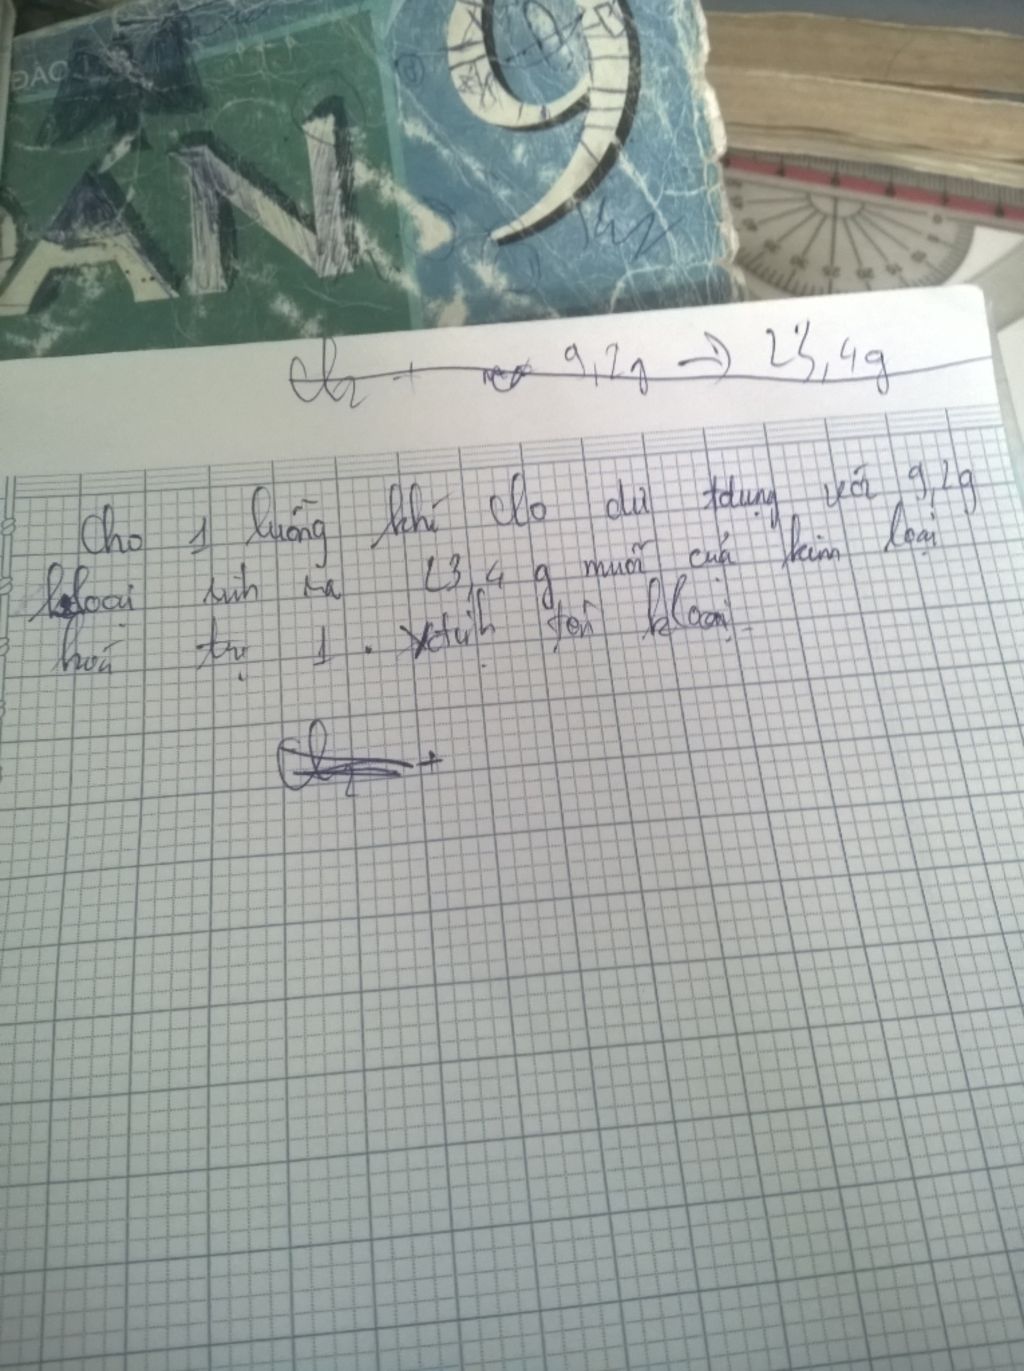 ĐÀO
ÁN 9
Cl2 + 9,2g → 23,4g
Cho 1 luồng khí clo dư tdụng với 9,2g
kloại sinh ra 23,4 g muối của kim loại
hoá trị 1. Xđịnh tên kloại
Cl2 +